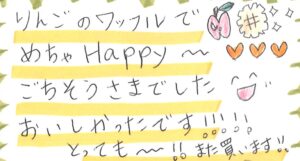 りんごのワッフルで
めちゃHappy〜
ごちそうさまでした
おいしかったです!!!!!
とっても〜!! また買います!!